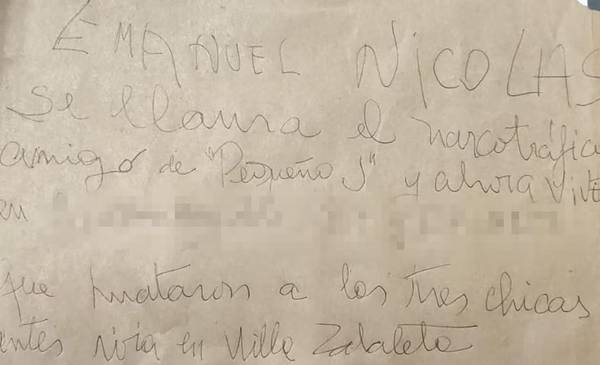 EMANUEL NICOLAS
se llama el narcotráfica
amigo de "Pequeño J" y ahora vive
en
que mataron a las tres chicas
antes vivía en Villa Zabaleta